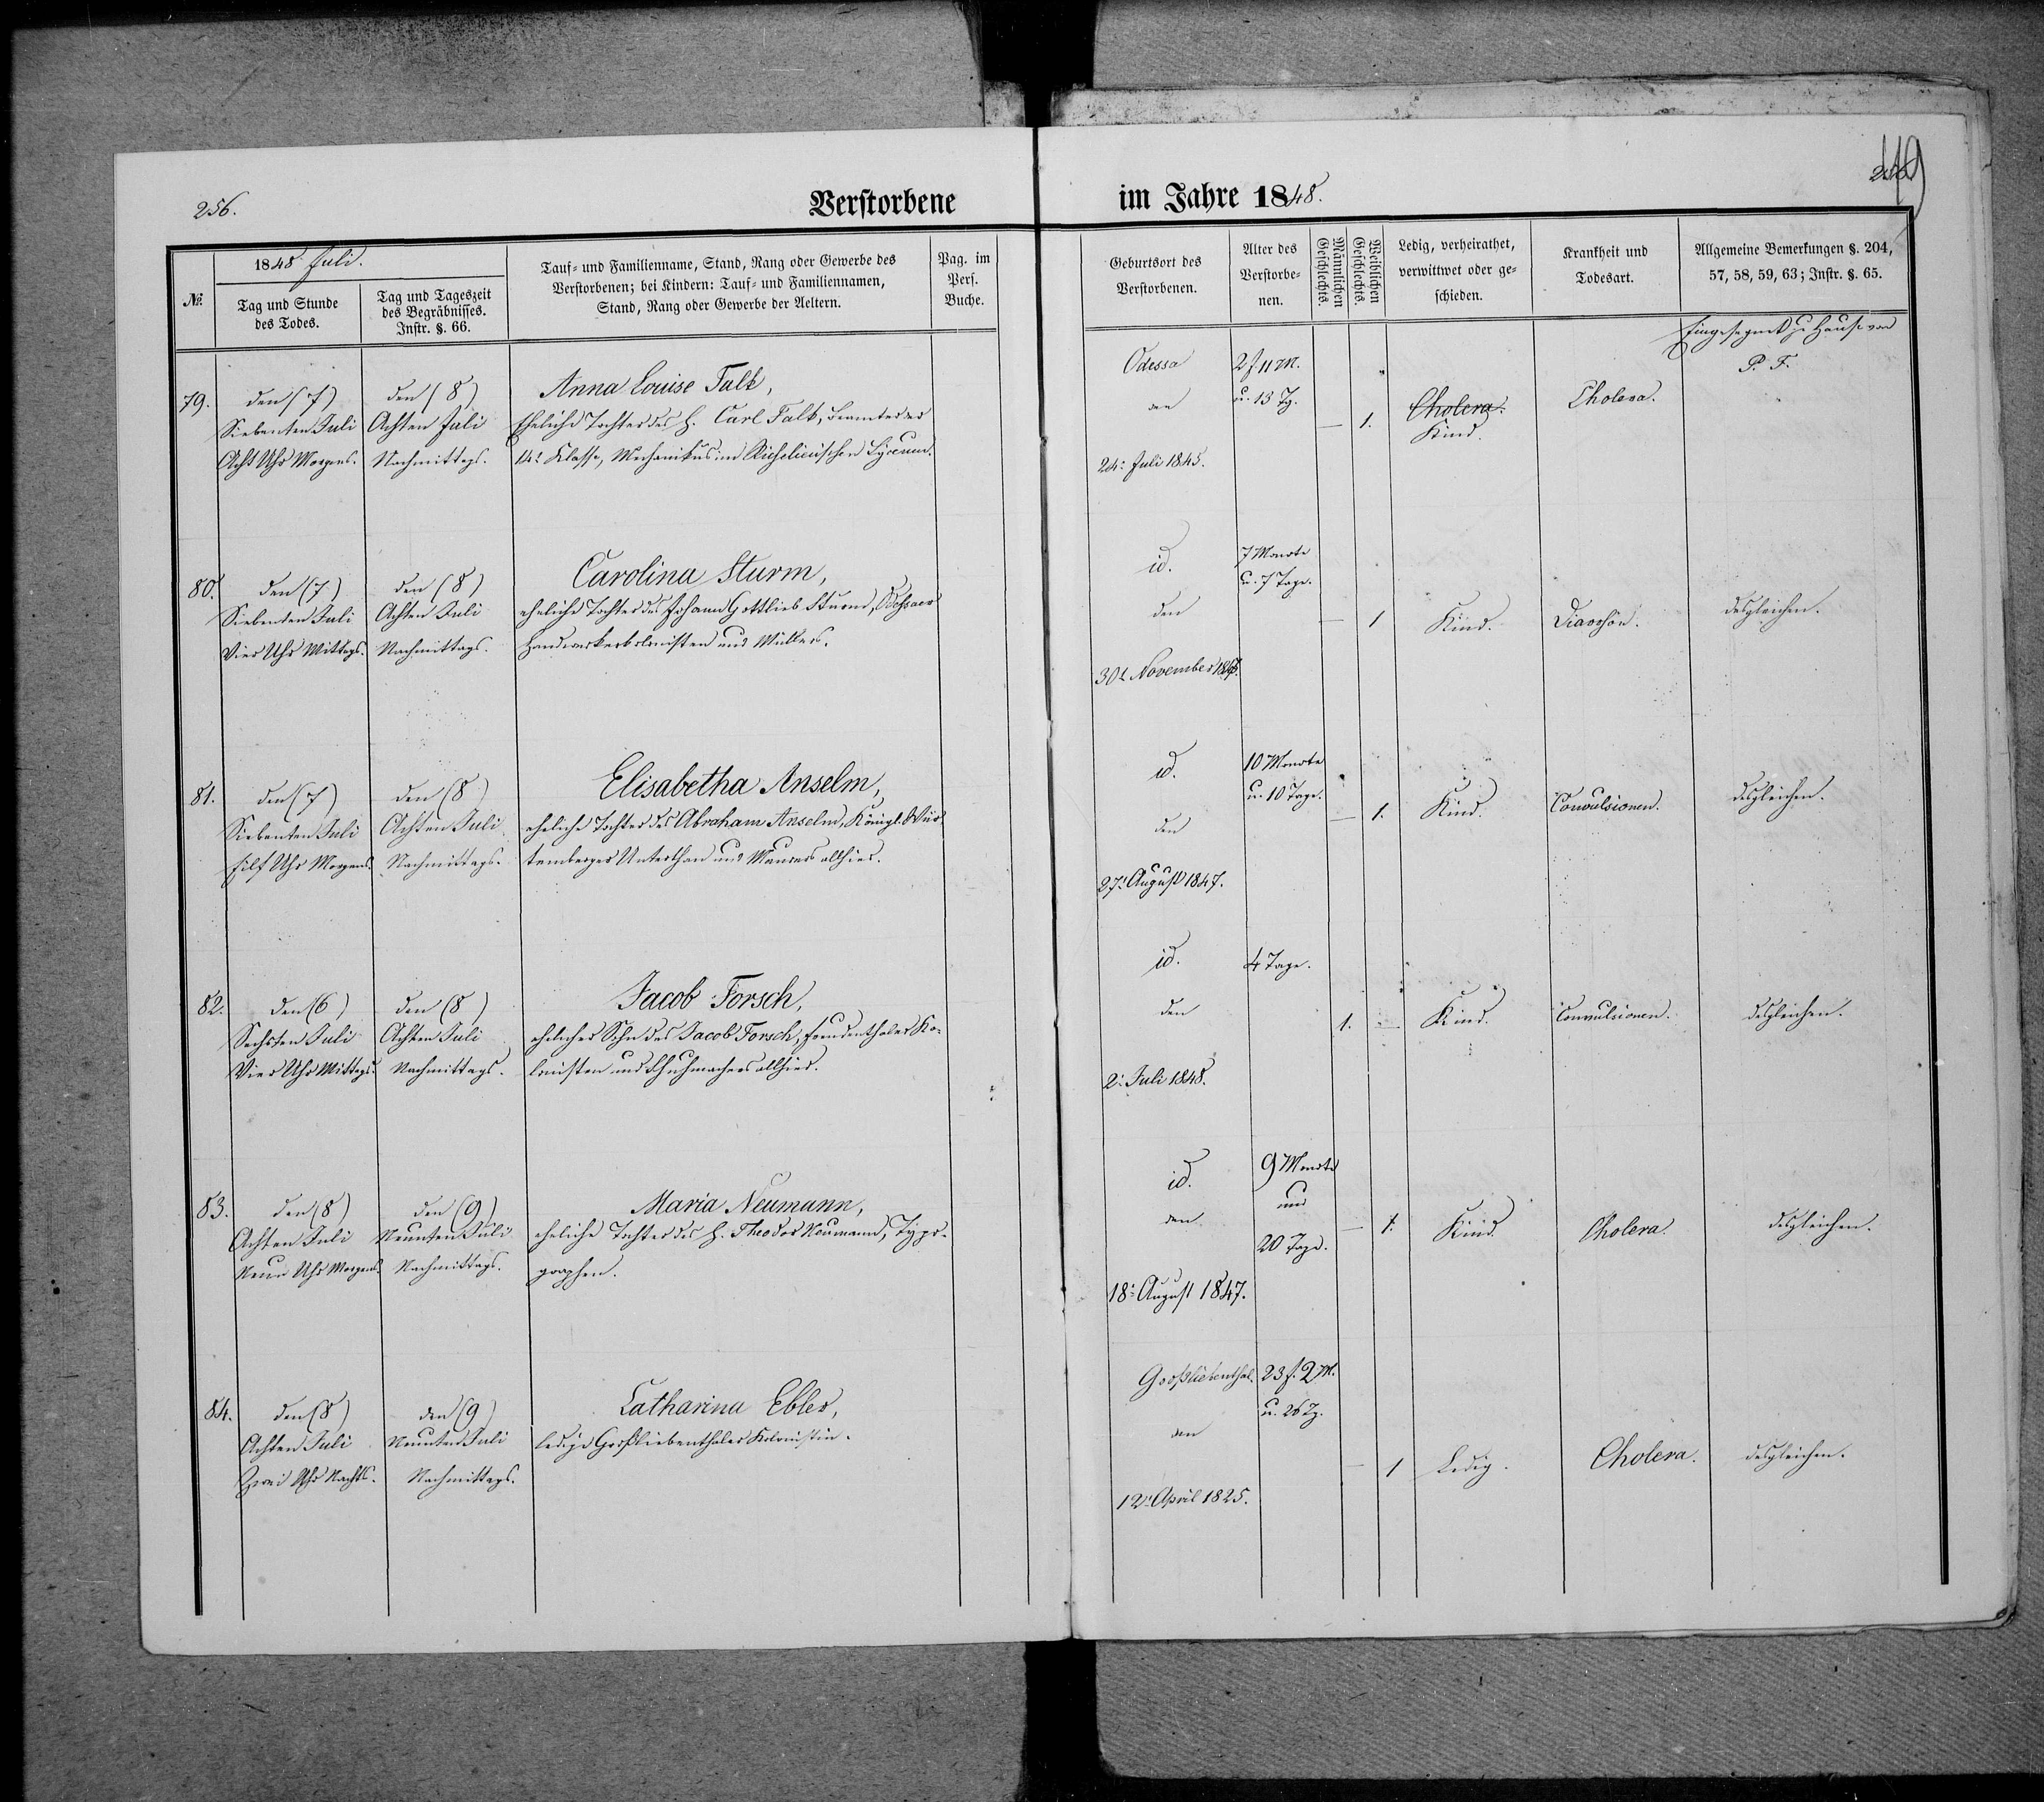 256.
Verstorbene
im Jahre 1848.
1848 Juli.
№.
Tag und Stunde
des Todes.
Tag und Tageszeit
des Begräbnisses.
Instr. §. 66.
Tauf- und Familienname, Stand, Rang oder Gewerbe des
Verstorbenen; bei Kindern: Tauf- und Familiennamen,
Stand, Rang oder Gewerbe der Aeltern.
Pag. im
Pers.
Buche.
Geburtsort des
Verstorbenen.
Alter des
Verstorbe-
nen.
Männlichen
Geschlechts.
Weiblichen
Geschlechts.
Ledig, verheirathet,
verwittwet oder ge-
schieden.
Krankheit und
Todesart.
Allgemeine Bemerkungen §. 204,
57, 58, 59, 63; Instr. §. 65.
79.
den (7)
Siebenten Juli
Acht Uhr Morgens.
den (8)
Achten Juli
Nachmittags.
Anna Louise Falk,
Eheliche Tochter des H. Carl Falk, Beamter der
14r Klasse, Mechanikus im Richelieuischen Lyceum.
Odessa
den
24r Juli 1845.
2 J 11 M.
u. 13 Tg.
—
1.
Cholera.
Kind.
Cholera.
Eingesegnet zu Hause von
P. F.
80.
den (7)
Siebenten Juli
Vier Uhr Mittags.
den (8)
Achten Juli
Nachmittags.
Carolina Sturm,
eheliche Tochter des Johann Gottlieb Sturm, Odessaer
Handwerkerkolonisten und Müllers.
id.
den
30t November 1847.
7 Monate
u. 7 Tage.
—
1
Kind.
Diarrhöe.
desgleichen.
81.
den (7)
Siebenten Juli
Eilf Uhr Morgens.
den (8)
Achten Juli
Nachmittags.
Elisabetha Anselm,
eheliche Tochter des Abraham Anselm, Königl. Wür-
temberger Unterthan und Maurers allhier.
id.
den
27r August 1847.
10 Monate
u. 10 Tage.
—
1.
Kind.
Convulsionen.
desgleichen.
82.
den (6)
Sechsten Juli
Vier Uhr Mittags.
den (8)
Achten Juli
Nachmittags.
Jacob Forsch,
ehelicher Sohn des Jacob Forsch, Freudenthaler Ko-
lonisten und Schuhmachers allhier.
id.
den
2r Juli 1848.
4 Tage.
1.
—
Kind.
Convulsionen.
desgleichen.
83.
den (8)
Achten Juli
Neun Uhr Morgens.
den (9)
Neunten Juli
Nachmittags.
Maria Neumann,
eheliche Tochter des H. Theodor Neumann, Typo-
graphen.
id.
den
18r August 1847.
9 Monate
und
20 Tage.
—
1.
Kind.
Cholera.
desgleichen.
84.
den (8)
Achten Juli
Zwei Uhr Nachts.
den (9)
Neunten Juli
Nachmittags.
Catharina Ebler,
ledige Großliebenthaler Kolonistin.
Großliebenthal.
den
12r April 1825.
23 J. 2 M.
u. 26 Tg.
—
1
Ledig.
Cholera.
desgleichen.